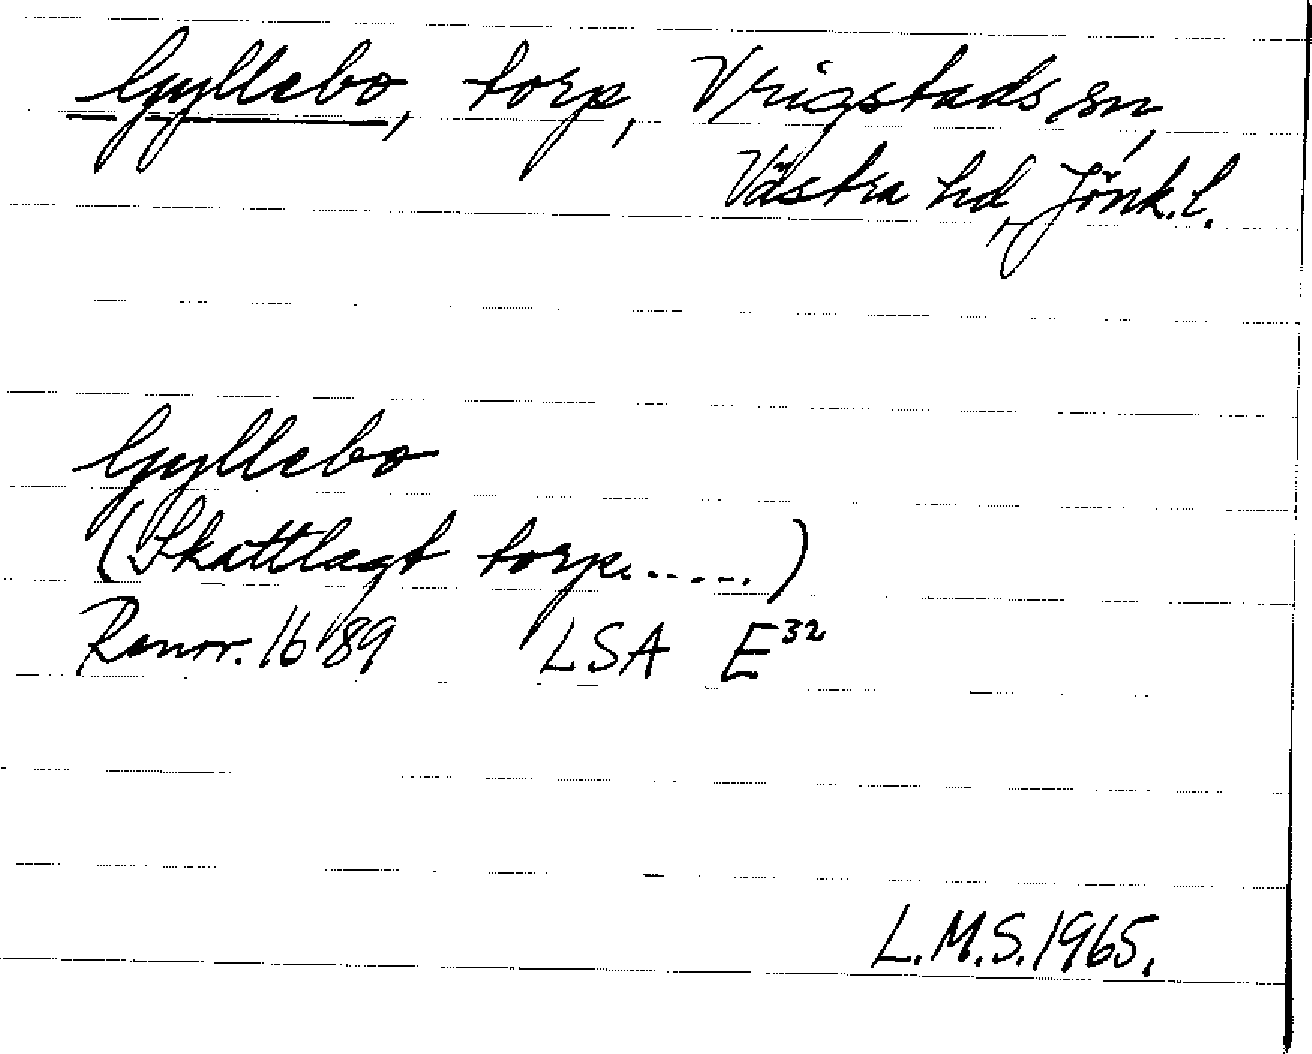 Gyllebo, torp, Vrigstads sn,
Västra hd, Jönk.l.
Gyllebo
(Skattlagt torp......)
Renov. 1689 LSA E32
L.M.S. 1965.